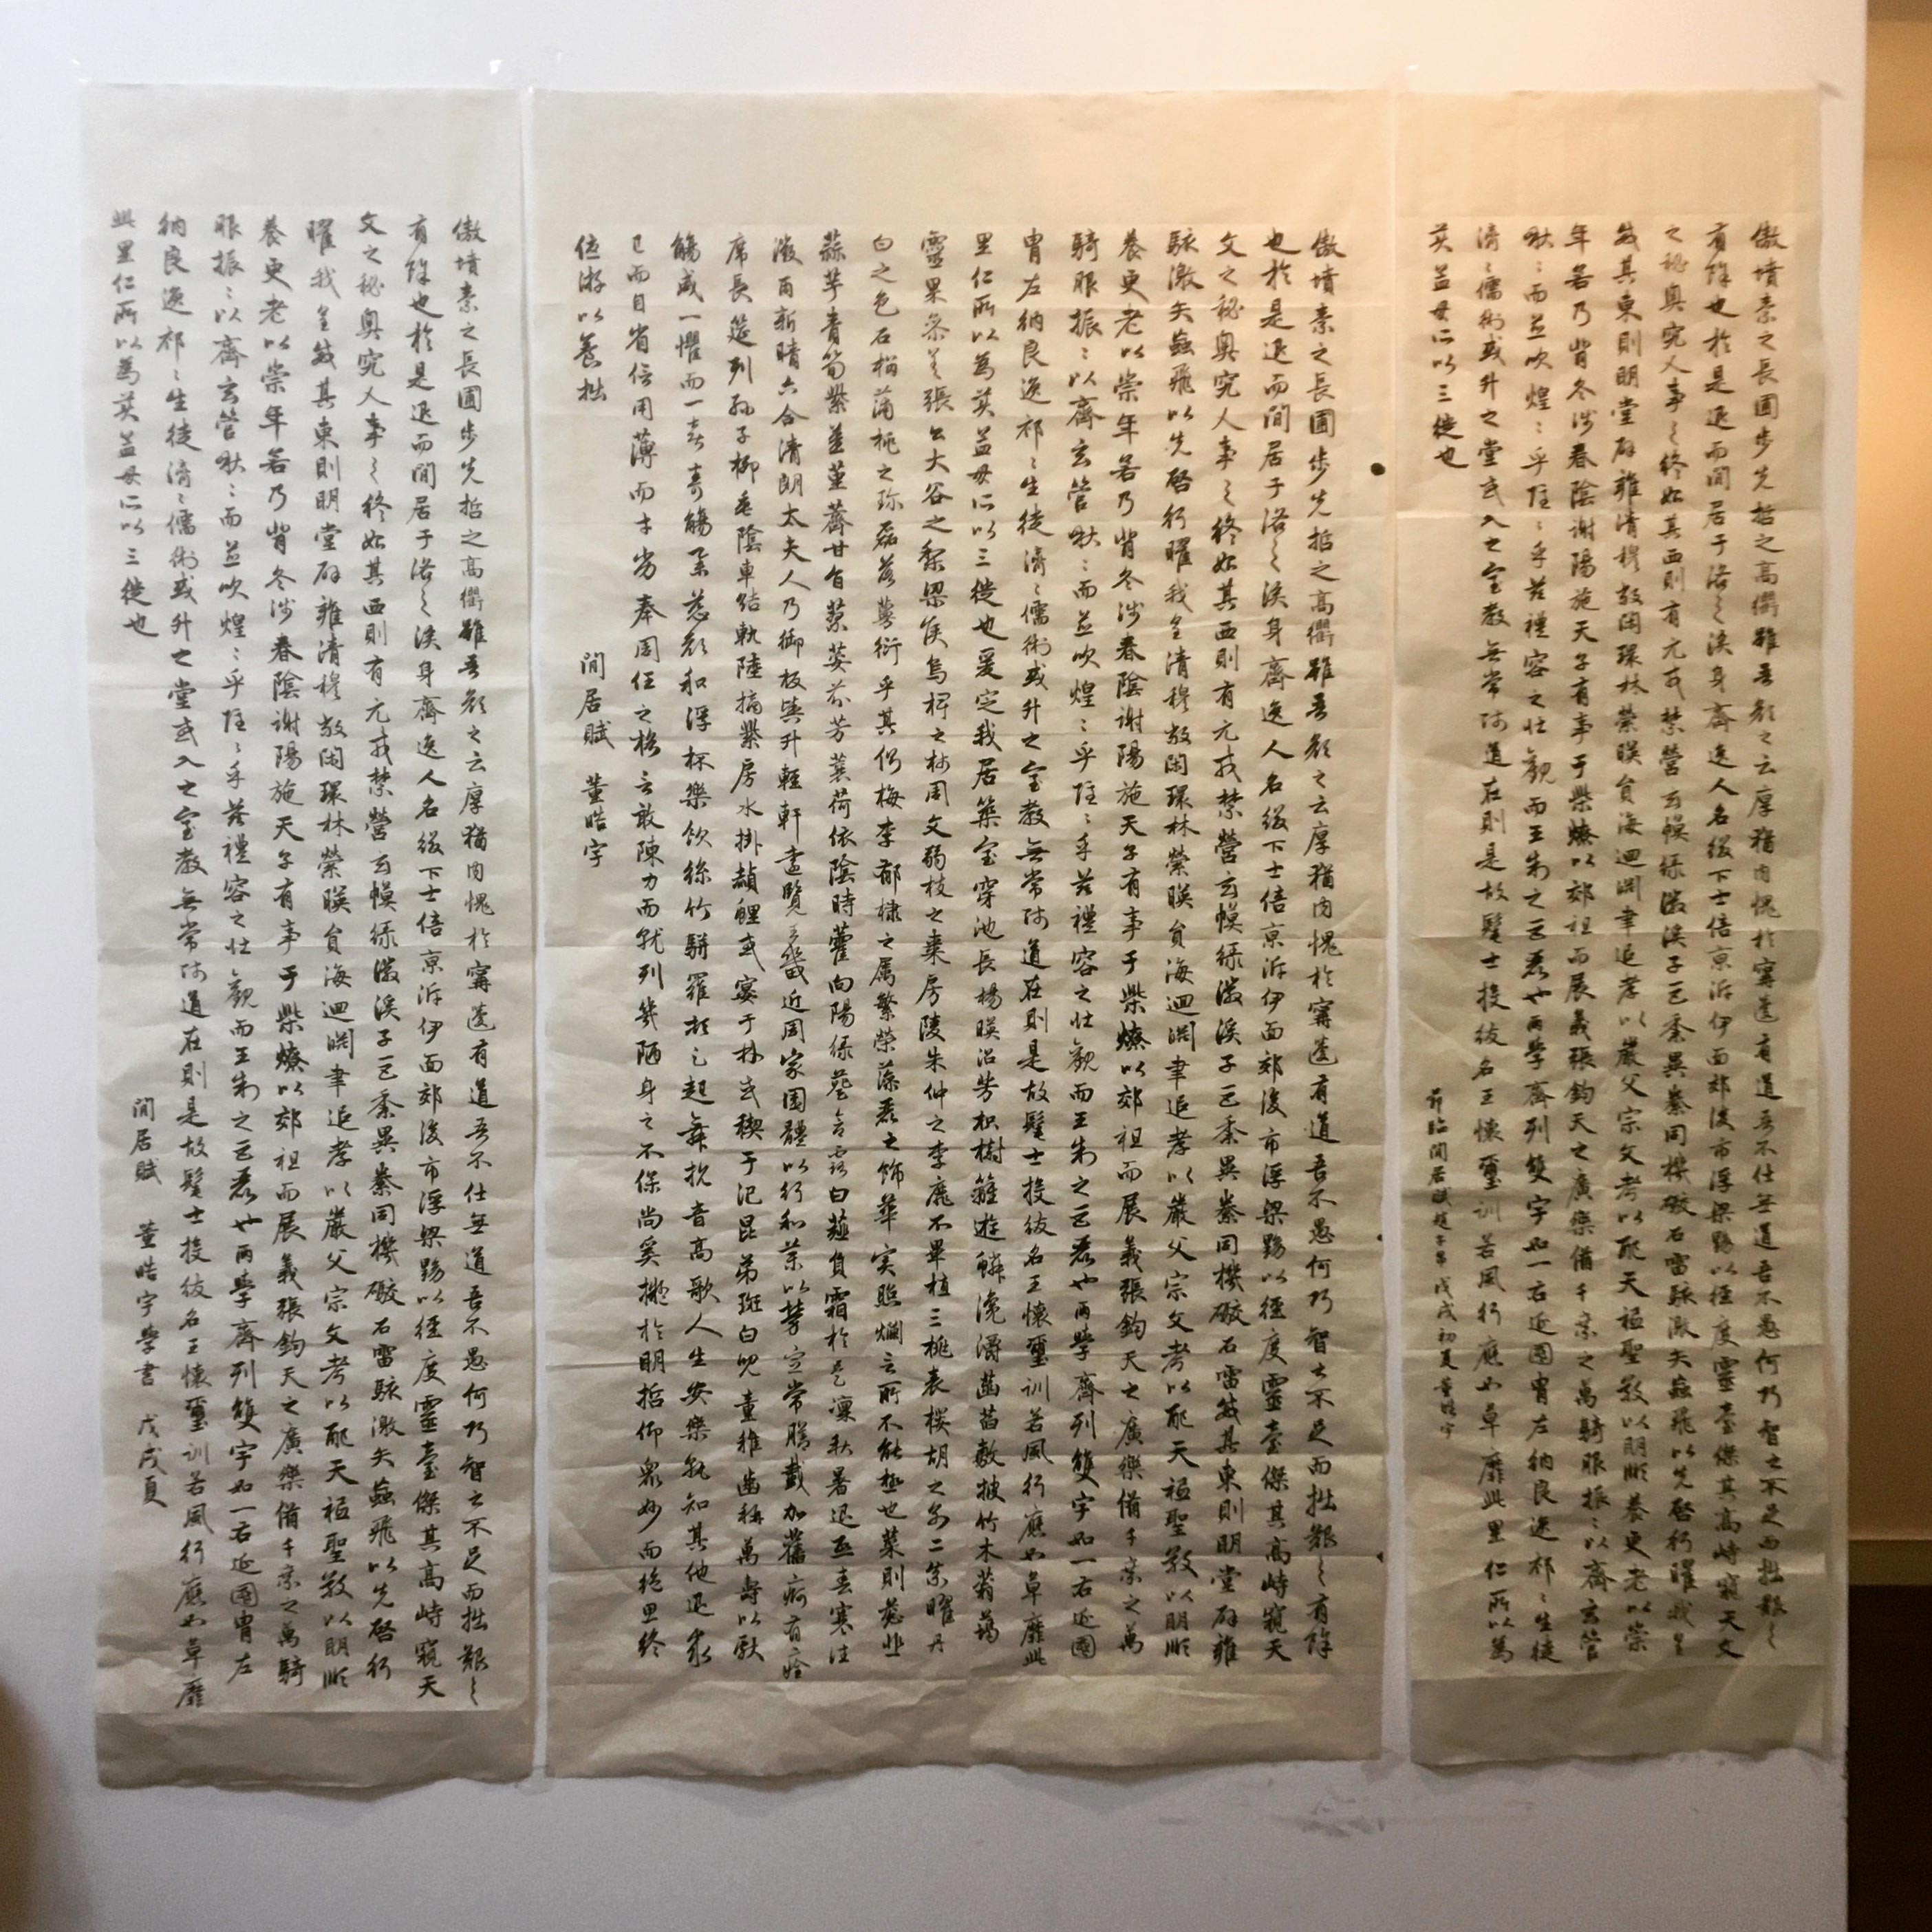 傲墳素之長圃步先哲之高衢雖吾顏之云厚猶內愧於甯蘧有道吾不仕無道吾不愚何巧智之不足而拙艱之
有餘也於是退而閒居于洛之涘身齊逸人名綴下士倍京泝伊面郊後市浮梁黝以徑度靈臺傑其高峙窺天文
之秘奧究人事之終始其西則有元戎禁營玄幙綠徽溪子巨黍異絭同機礮石雷駭激矢蝱飛以先啓行曜我皇
威其東則明堂辟雍清穆敞閑環林縈映圓海迴淵聿追孝以嚴父宗文考以配天祗聖敬以明順養更老以崇
年若乃背冬涉春陰謝陽施天子有事于柴燎以郊祖而展義張鈞天之廣樂備千乘之萬騎服振振以齊玄管
啾啾而並吹煌煌乎隱隱乎茲禮容之壯觀而王制之巨麗也兩學齊列雙宇如一右延國胄左納良逸祁祁生徒
濟濟儒術或升之堂或入之室教無常師道在則是故髦士投紱名王懷璽訓若風行應如草靡此里仁所以為
美孟母所以三徙也
節臨閒居賦趙子昂 戊戌初夏董皓宇
傲墳素之長圃步先哲之高衢雖吾顏之云厚猶內愧於甯蘧有道吾不仕無道吾不愚何巧智之不足而拙艱之有餘
也於是退而閒居于洛之涘身齊逸人名綴下士倍京泝伊面郊後市浮梁黝以徑度靈臺傑其高峙窺天
文之秘奧究人事之終始其西則有元戎禁營玄幙綠徽溪子巨黍異絭同機礮石雷威其東則明堂辟雍
駭激矢蝱飛以先啓行曜我皇清穆敞閑環林縈映圓海迴淵聿追孝以嚴父宗文考以配天祗聖敬以明順
養更老以崇年若乃背冬涉春陰謝陽施天子有事于柴燎以郊祖而展義張鈞天之廣樂備千乘之萬
騎服振振以齊玄管啾啾而並吹煌煌乎隱隱乎茲禮容之壯觀而王制之巨麗也兩學齊列雙宇如一右延國
胄左納良逸祁祁生徒濟濟儒術或升之堂或入之室教無常師道在則是故髦士投紱名王懷璽訓若風行應如草靡此
里仁所以為美孟母所以三徙也爰定我居築室穿池長楊映沼芳枳樹籬遊鱗瀺灂菡萏敷披竹木蓊藹
靈果參差張公大谷之梨梁侯烏椑之柿周文弱枝之棗房陵朱仲之李靡不畢植三桃表櫻胡之別二柰曜丹
白之色石榴蒲桃之珍磊落蔓衍乎其側梅李郁棣之屬繁榮藻麗之飾華實照爛言所不能極也菜則蔥韭
蒜芋青筍紫薑堇薺甘旨蓼荾芬芳蘘荷依陰時藿向陽綠葵含露白薤負霜於是凜秋暑退熙春寒往
微雨新晴六合清朗太夫人乃御板輿升輕軒遠覽王畿近周家園體以行和藥以勞宣常膳載加舊痾有痊
席長筵列孫子柳垂陰車結軌陸摘紫房水掛赬鯉或宴于林或禊于汜昆弟斑白兒童稚齒稱萬壽以獻
觴咸一懼而一喜壽觴舉慈顏和浮杯樂飲絲竹駢羅頓足起舞抗音高歌人生安樂孰知其他退求
已而自省信用薄而才劣奉周任之格言敢陳力而就列幾陋身之不保尚奚擬於明哲仰眾妙而絕思終
游以養拙
閒居賦 董皓宇
傲墳素之長圃步先哲之高衢雖吾顏之云厚猶內愧於甯蘧有道吾不仕無道吾不愚何巧智之不足而拙艱之
有餘也於是退而閒居于洛之涘身齊逸人名綴下士倍京泝伊面郊後市浮梁黝以徑度靈臺傑其高峙窺天
文之秘奧究人事之終始其西則有元戎禁營玄幙綠徽溪子巨黍異絭同機礮石雷駭激矢蝱飛以先啓行
曜我皇威其東則明堂辟雍清穆敞閑環林縈映圓海迴淵聿追孝以嚴父宗文考以配天祗聖敬以明順
養更老以崇年若乃背冬涉春陰謝陽施天子有事于柴燎以郊祖而展義張鈞天之廣樂備千乘之萬騎
服振振以齊玄管啾啾而並吹煌煌乎隱隱乎茲禮容之壯觀而王制之巨麗也兩學齊列雙宇如一右延國胄左
納良逸祁祁生徒濟濟儒術或升之堂或入之室教無常師道在則是故髦士投紱名王懷璽訓若風行應如草靡
此里仁所以為美孟母所以三徙也
閒居賦 董皓宇學書 戊戌夏